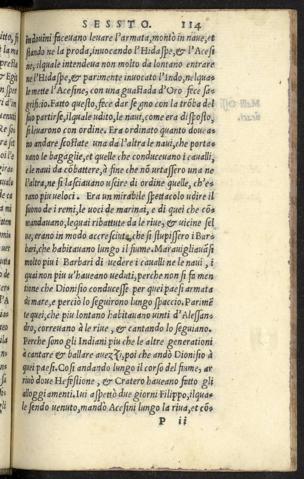 SESSTO. 114
Indouini faceuano leuare l'armata, montò in naue, et
stando ne la proda, inuocando l'Hidaspe, & l'Acesi
ne, ilquale intendeua non molto da lontano entrare
ne l'Hidaspe, & parimente inuocato l'Indo, nelqua-
le mette l'Acesine, con una guastada d'Oro fece sa-
grificio. Fatto questo, fece dar segno con la trōba del
suo partirse, ilquale udito, le naui, come era disposto,
si leuarono con ordine. Era ordinato quanto doue a-
no andare scostate una da l'altra le naui, che porta-
uano le bagaglie, et quelle che conduceuano i caualli,
e le naui da cōbattere, à fine che nō urtassero una ne
l'altra, ne si lasciauano uscire di ordine quelle, ch'e-
rano piu ueloci. Era un mirabile spettacolo udire il
suono de i remi, le uoci de marinai, e di quei che cō-
mandauano, lequai ributtate da le riue, & uicine sel
ue, erano in modo accresciute, che si stupissero i Bar-
bari, che habitauano lungo il fiume. Marauigliauāsi
molto piu i Barbari di uedere i caualli ne le naui, i
quai non piu u'haueano uedati, perche non si fa men
tione che Dionisio conducesse per quei paesi armata
di mare, e perciò lo seguirono lungo spaccio. Parimē
te quei, che piu lontano habitauano uinti d'Alessan-
dro, correuano à le riue, & cantando lo seguiano.
Perche sono gli Indiani piu che le altre generationi
à cantare & ballare auezzi, poi che andò Dionisio à
quei paesi. Cosi andando lungo il corso del fiume, ar
riuò doue Hefestione, & Cratero haueano fatto gli
aloggiamenti. Iui aspettò due giorni Filippo, ilqua-
le sendo uenuto, mandò Acesini lungo la riua, et cō-
P ii